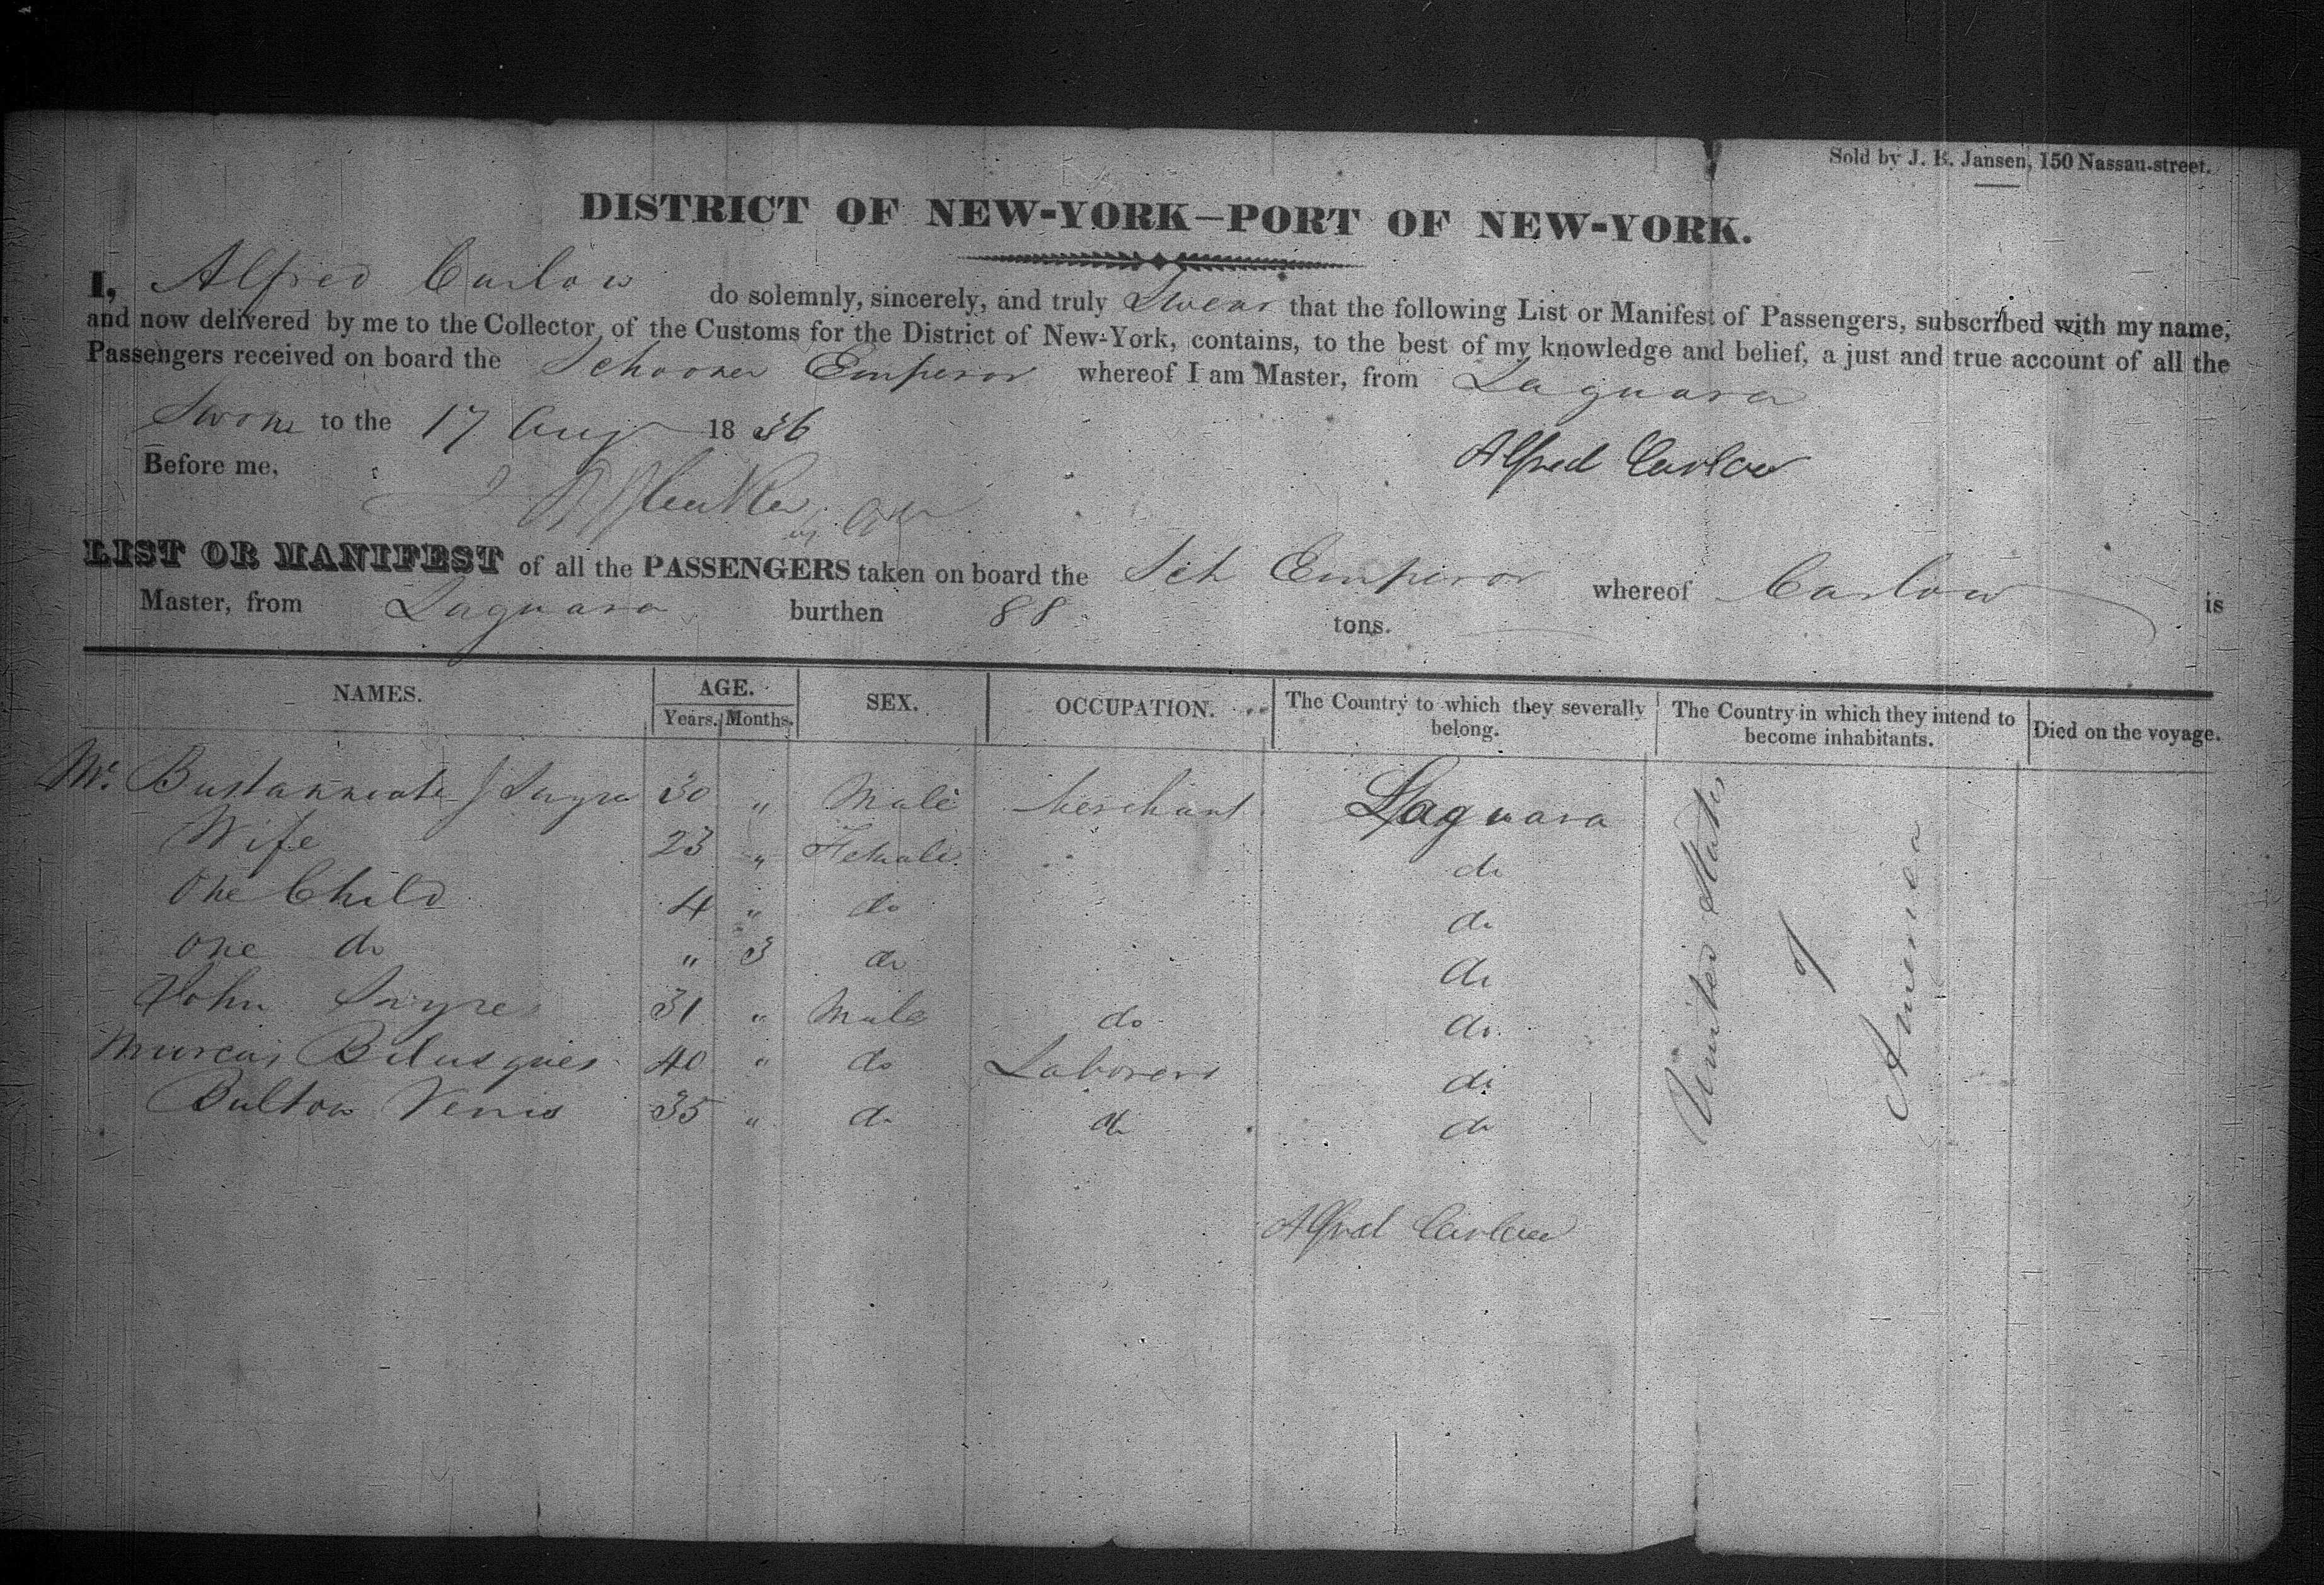 Sold by J. R. Jansen, 150 Nassau-street.
DISTRICT OF NEW-YORK—PORT OF NEW-YORK.
I, Alfred Carlow do solemnly, sincerely, and truly Swear that the following List or Manifest of Passengers, subscribed with my name,
and now delivered by me to the Collector of the Customs for the District of New-York, contains, to the best of my knowledge and belief, a just and true account of all the
Passengers received on board the Schooner Emperor whereof I am Master, from Laguara
Sworn to the 17 Aug 1836
Alfred Carlow
Before me,
LIST OR MANIFEST of all the PASSENGERS taken on board the Sch Emperor whereof Carlow is
Master, from Laguara burthen 88 tons.
NAMES. AGE. SEX. OCCUPATION. The Country to which they severally belong. The Country in which they intend to become inhabitants. Died on the voyage.
Years. Months.
Mr. 30 " Male Merchant Laguara United States of America
Wife 23 " Female do
One Child 4 " do do
One do " 3 do do
John 31 " Male do do
40 " do Laborers do
35 " do do do
Alfred Carlow